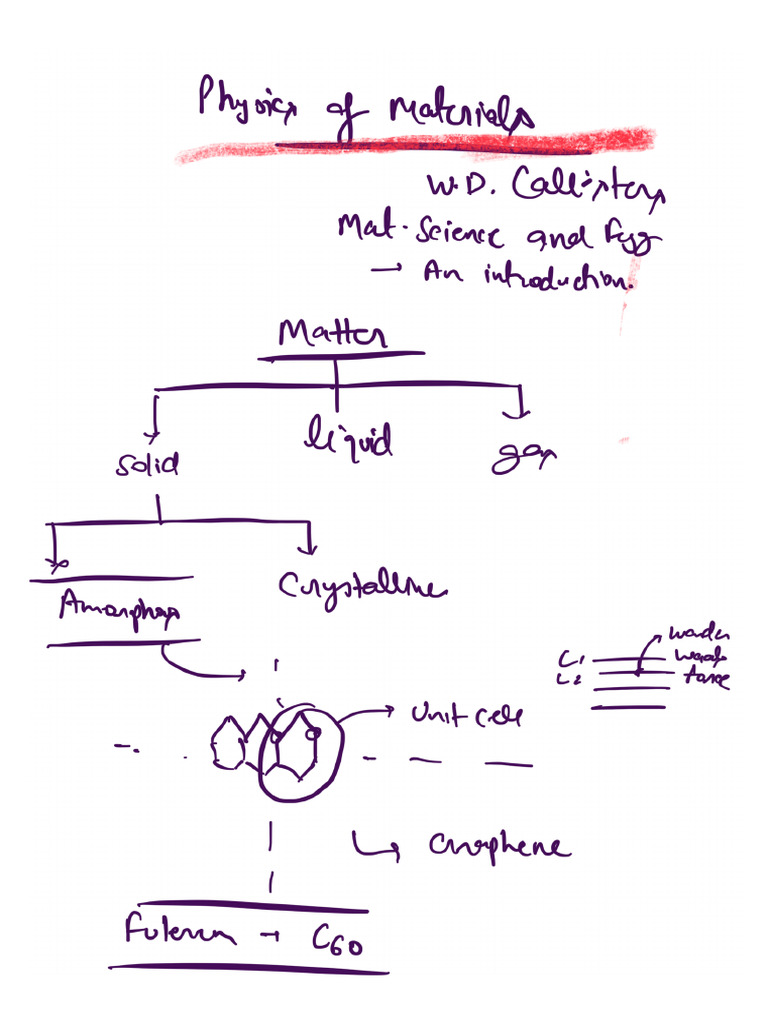 Physics of Materials
W.D. Callister,
Mat. Science and Egg
→ An introduction.
Matter
solid
liquid
gas
Amorphas
Crystalline
C1
C2
Unit cell
Graphene
Fuleren → C60